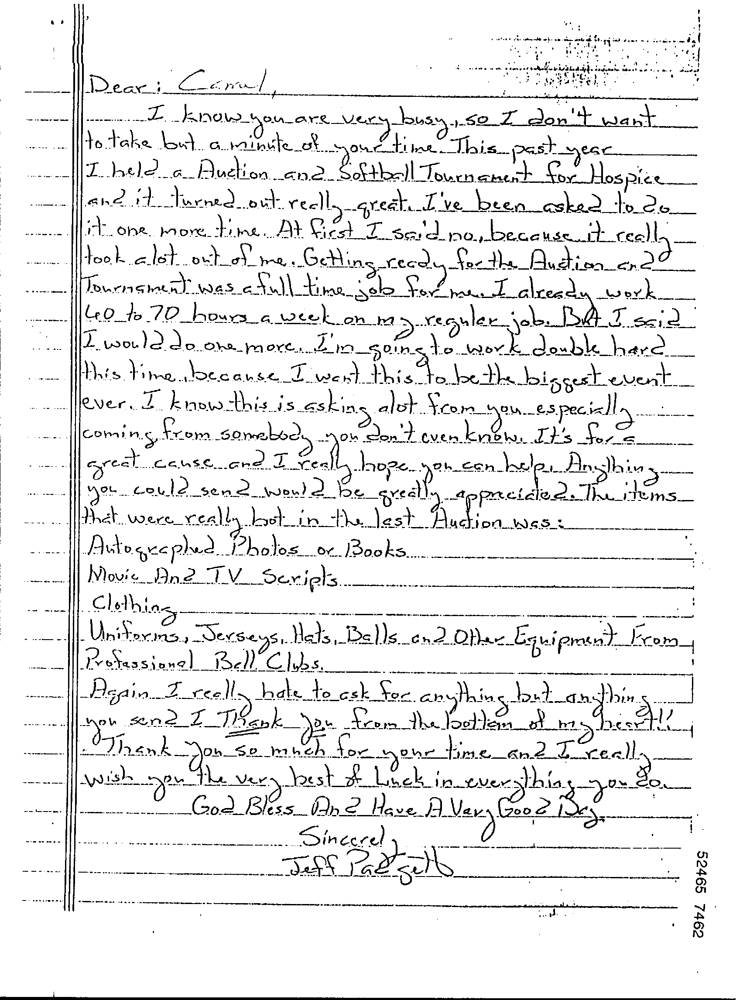 Dear: Camel,
I know you are very busy, so I don't want
to take but a minute of your time. This past year
I held a Auction and Softball Tournament for Hospice
and it turned out really great. I've been asked to do
it one more time. At first I said no, because it really
took alot out of me. Getting ready for the Auction and
Tournament was a full time job for me. I already work
60 to 70 hours a week on my regular job. But I said
I would do one more. I'm going to work double hard
this time, because I want this to be the biggest event
ever. I know this is asking alot from you especially
coming from somebody you don't even know. It's for a
great cause and I really hope you can help. Anything
you could send would be greatly appreciated. The items
that were really hot in the last Auction was:
Autographed Photos or Books
Movie And TV Scripts
Clothing
Uniforms, Jerseys, Hats, Balls and Other Equipment From
Professional Ball Clubs.
Again I really hate to ask for anything but anything
you send I Thank You from the bottom of my heart!!
Thank You so much for your time and I really
wish you the very best of Luck in everything you do.
God Bless And Have A Very Good Day.
Sincerely
Jeff Padgett
52465 7462